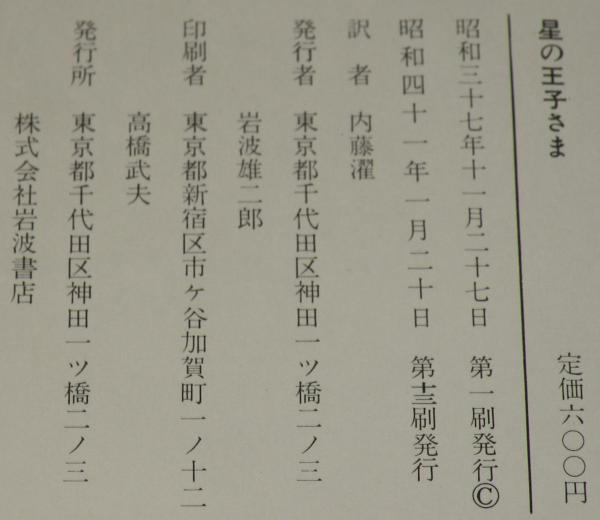 星の王子さま
定価六〇〇円
昭和三十七年十一月二十七日 第一刷発行©
昭和四十一年一月二十日 第十三刷発行
訳者 内藤濯
発行者 東京都千代田区神田一ツ橋二ノ三
岩波雄二郎
印刷者 東京都新宿区市ケ谷加賀町一ノ十二
高橋武夫
発行所 東京都千代田区神田一ツ橋二ノ三
株式会社岩波書店